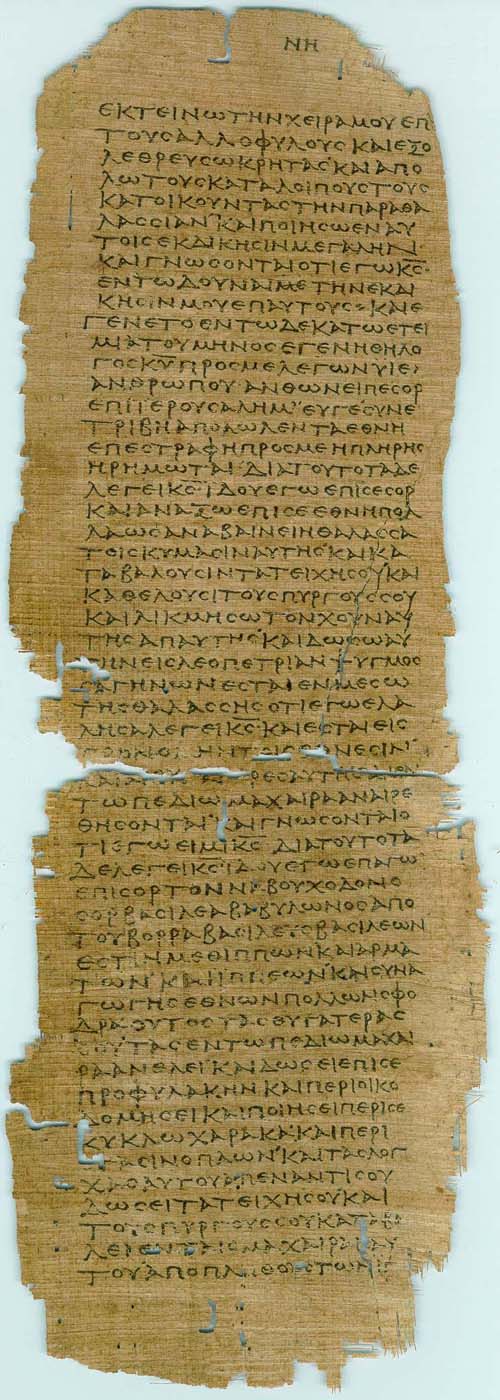 ΝΗ
ΕΚΤΕΙΝΩΤΗΝΧΕΙΡΑΜΟΥΕΠΙ
ΤΟΥϹΑΛΛΟΦΥΛΟΥϹΚΑΙΕΞΟ
ΛΕΘΡΕΥϹΩΚΡΗΤΑϹΚΑΙΑΠΟ
ΛΩΤΟΥϹΚΑΤΑΛΟΙΠΟΥϹΤΟΥϹ
ΚΑΤΟΙΚΟΥΝΤΑϹΤΗΝΠΑΡΑΘΑ
ΛΑϹϹΙΑΝΚΑΙΠΟΙΗϹΩΕΝΑΥ
ΤΟΙϹΕΚΔΙΚΗϹΙΝΜΕΓΑΛΗΝ
ΚΑΙΓΝΩϹΟΝΤΑΙΟΤΙΕΓΩΚϹ
ΕΝΤΩΔΟΥΝΑΙΜΕΤΗΝΕΚΔΙ
ΚΗϹΙΝΜΟΥΕΠΑΥΤΟΥϹ ΚΑΙΕ
ΓΕΝΕΤΟΕΝΤΩΔΕΚΑΤΩΕΤΕΙ
ΜΙΑΤΟΥΜΗΝΟϹΕΓΕΝΗΘΗΛΟ
ΓΟϹΚΥΠΡΟϹΜΕΛΕΓΩΝΥΙΕ
ΑΝΘΡΩΠΟΥΑΝΘΩΝΕΙΠΕϹΟΡ
ΕΠΙΪΕΡΟΥϹΑΛΗΜΕΥΓΕϹΥΝΕ
ΤΡΙΒΗΑΠΟΛΩΛΕΝΤΑΕΘΝΗ
ΕΠΕϹΤΡΑΦΗΠΡΟϹΜΕΗΠΛΗΡΗϹ
ΗΡΗΜΩΤΑΙΔΙΑΤΟΥΤΟΤΑΔΕ
ΛΕΓΕΙΚϹΪΔΟΥΕΓΩΕΠΙϹΕϹΟΡ
ΚΑΙΑΝΑΞΩΕΠΙϹΕΕΘΝΗΠΟΛ
ΛΑΩϹΑΝΑΒΑΙΝΕΙΗΘΑΛΑϹϹΑ
ΤΟΙϹΚΥΜΑϹΙΝΑΥΤΗϹΚΑΙΚΑ
ΤΑΒΑΛΟΥϹΙΝΤΑΤΕΙΧΗϹΟΥΚΑΙ
ΚΑΘΕΛΟΥϹΙΤΟΥϹΠΥΡΓΟΥϹϹΟΥ
ΚΑΙΛΙΚΜΗϹΩΤΟΝΧΟΥΝΑΥ
ΤΗϹΑΠΑΥΤΗϹΚΑΙΔΩϹΩΑΥ
ΤΗΝΕΙϹΛΕΟΠΕΤΡΙΑΝΨΥΓΜΟϹ
ϹΑΓΗΝΩΝΕϹΤΑΙΕΝΜΕϹΩ
ΤΗϹΘΑΛΑϹϹΗϹΟΤΙΕΓΩΕΛΑ
ΛΗϹΑΛΕΓΕΙΚϹΚΑΙΕϹΤΑΙΕΙϹ
ΤΩΠΕΔΙΩΜΑΧΑΙΡΑΑΝΑΙΡΕ
ΘΗϹΟΝΤΑΙΚΑΙΓΝΩϹΟΝΤΑΙΟ
ΤΙΕΓΩΕΙΜΙΚϹΔΙΑΤΟΥΤΟΤΑ
ΔΕΛΕΓΕΙΚϹΪΔΟΥΕΓΩΕΠΑΓΩ
ΕΠΙϹΟΡΤΟΝΝΑΒΟΥΧΟΔΟΝΟ
ϹΟΡΒΑϹΙΛΕΑΒΑΒΥΛΩΝΟϹΑΠΟ
ΤΟΥΒΟΡΡΑΒΑϹΙΛΕΥϹΒΑϹΙΛΕΩΝ
ΕϹΤΙΝΜΕΘΙΠΠΩΝΚΑΙΑΡΜΑ
ΤΩΝΚΑΙΙΠΠΕΩΝΚΑΙϹΥΝΑ
ΓΩΓΗϹΕΘΝΩΝΠΟΛΛΩΝϹΦΟ
ΔΡΑΟΥΤΟϹΤΑϹΘΥΓΑΤΕΡΑϹ
ϹΟΥΤΑϹΕΝΤΩΠΕΔΙΩΜΑΧΑΙ
ΡΑΑΝΕΛΕΙΚΑΙΔΩϹΕΙΕΠΙϹΕ
ΠΡΟΦΥΛΑΚΗΝΚΑΙΠΕΡΙΟΙΚΟ
ΔΟΜΗϹΕΙΚΑΙΠΟΙΗϹΕΙΠΕΡΙϹΕ
ΚΥΚΛΩΧΑΡΑΚΑΚΑΙΠΕΡΙ
ϹΤΑϹΙΝΟΠΛΩΝΚΑΙΤΑϹΛΟΓ
ΧΑϹΑΥΤΟΥΑΠΕΝΑΝΤΙϹΟΥ
ΔΩϹΕΙΤΑΤΕΙΧΗϹΟΥΚΑΙ
ΤΟΥϹΠΥΡΓΟΥϹϹΟΥΚΑΤΑΒΑ